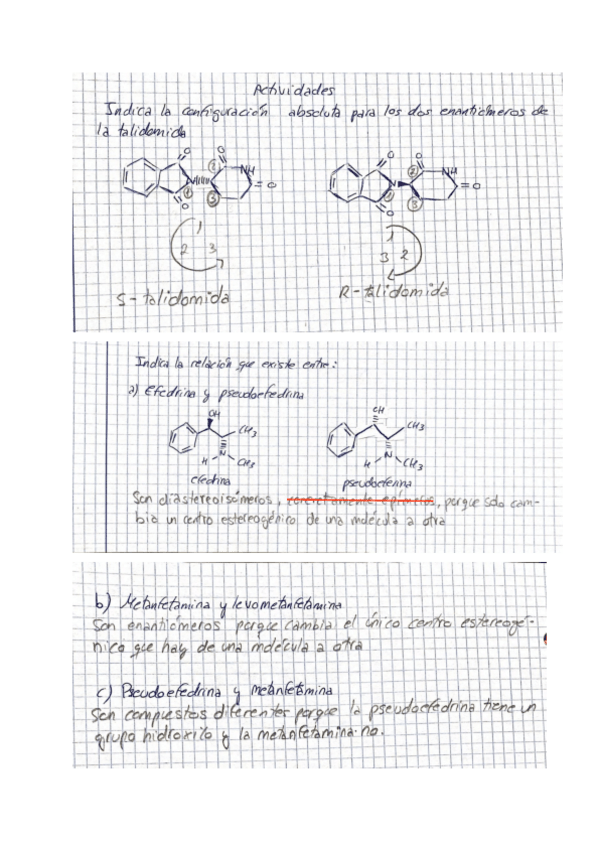 Actividades
Indica la configuración absoluta para los dos enantiómeros de
la talidomida
O O NH N O O 1 2 3
O O NH N O O 1 2 3
1 2 3
1 3 2
S - talidomida
R - talidomida
Indica la relación que existe entre:
a) Efedrina y pseudoefedrina
OH CH3 N H CH3
OH CH3 N H CH3
efedrina
Son diastereoisómeros, concretamente epímeros, porque sólo cam-
bia un centro estereogénico de una molécula a otra
b) Metanfetamina y levometanfetamina
Son enantiómeros porque cambia el único centro estereogé-
nico que hay de una molécula a otra
c) Pseudoefedrina y metanfetamina
Son compuestos diferentes porque la pseudoefedrina tiene un
grupo hidroxilo y la metanfetamina no.